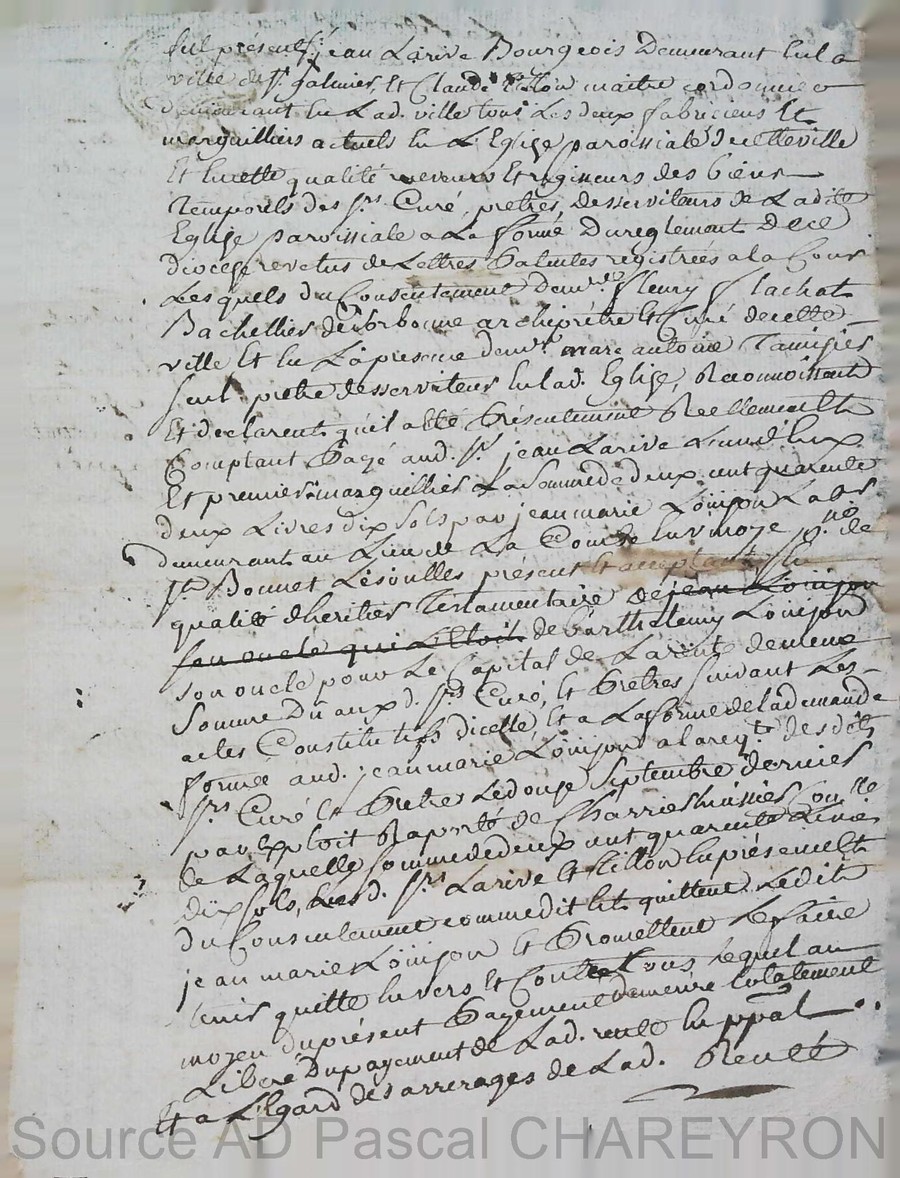 fut présent sr. jean Larive Bourgeois Demeurant en la
ville de st. galmier, Et Claude tillon maitre cordonnier
demeurant en Lad. ville tous Les deux fabriciens Et
marguilliers actuels en L'Eglise paroissiale d'icelle ville
Et en cette qualité receveurs Et régisseurs des biens
Temporels des srs. Curé, pretres, Desserviteurs de Ladite
Eglise paroissiale a La forme Du reglement De ce
diocese revetus de Lettres Patentes registrées a la Cour
Lesquels du Consentement de mre. fleury flachat
Bachellier de Sorbonne archiprétre Et Curé de cette
ville Et en La présence de mre. marc antoine Tamisier
seul pretre desserviteur en lad. Eglise, Reconnoissent
Et declarent qu'il a été Présentement Réellement Et
Comptant Payé aud. sr. jean Larive L'un d'Eux
Et premier marguillier La somme de deux cent quarante
deux Livres dix sols par jean marie Loüjon Labr
demeurant au Lieu de La Combe en vmoye psse. de
st. Bonnet Lesoulles présent Et acceptant En
qualité d'heritier Testamentaire de jean Loüijon
feu oncle qui L'Etoit de barthelemy Loüijon
son oncle pour Le Capital de La rente de meme
Somme Du aux d. srs. Curé, Et Pretres suivant Les
actes Constitutifs d'icelle, Et a La forme de la demande
formée aud. jean marie Loüijon a la reqte. des dits
srs. Curé Et Pretre Le douze Septembre dernier
par Exploit Raporté de Charrier huissier
de Laquelle somme de deux cent quarante deux Livres
dix sols, Les d. srs. Larive Et tillon En présence Et
du Consentement comme dit Est quittent Ledit
jean marie Loüijon Et Promettent Le faire
tenir quitte Envers Et Contre tous Lequel au
moyen du présent Payement demeure totalement
Libéré Du payement de Lad. rente En ppal
Et a L'Egard des arrerages de Lad. Rente
Source AD Pascal CHAREYRON